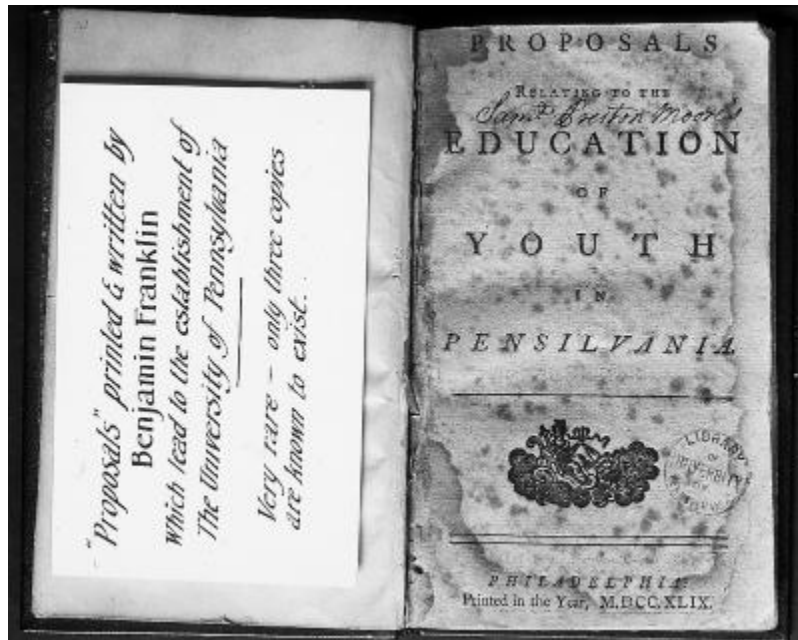 "Proposals" printed & written by
Benjamin Franklin
Which lead to the establishment of
The University of Pennsylvania
Very rare – only three copies
are known to exist.
PROPOSALS
RELATING TO THE
Sam.l Preston Moore's
EDUCATION
OF
YOUTH
IN
PENSILVANIA.
LIBRARY
OF
UNIVERSITY
PHILADELPHIA:
Printed in the Year, M.DCC.XLIX.